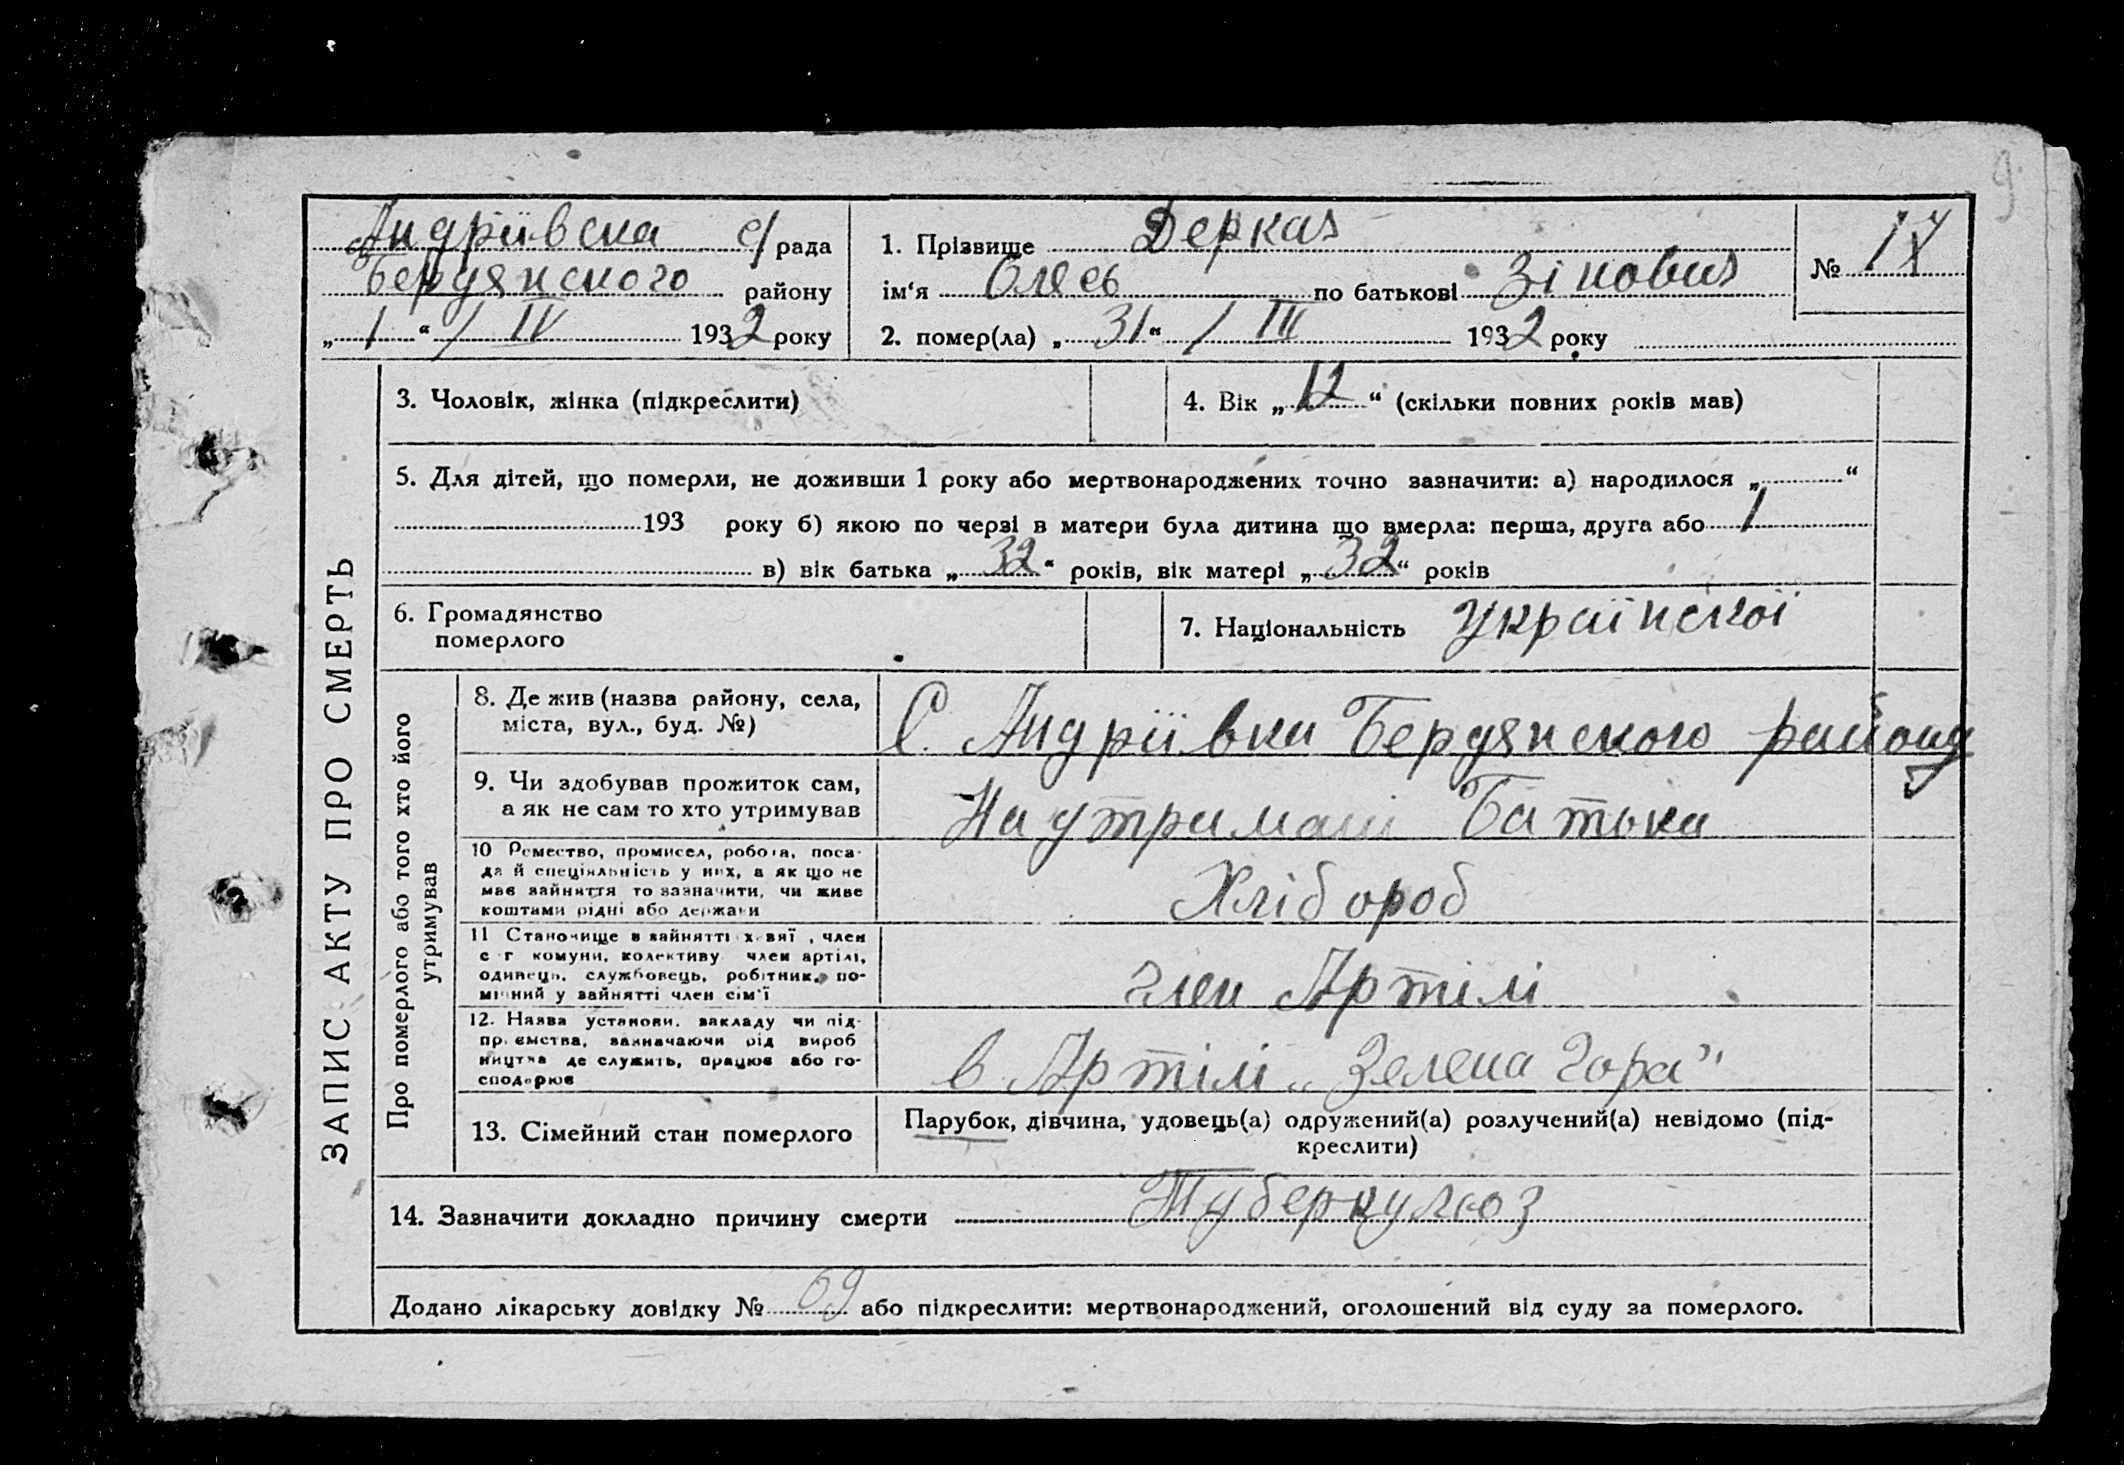 9
Андріївска с/рада
Бердянского району
„ 1 “ / IV 1932 року
1. Прізвище Деркач
ім‘я Олесь по батькові Зінович
2. помер(ла) „ 31 “ / III 1932 року
№
ЗАПИС АКТУ ПРО СМЕРТЬ
3. Чоловік, жінка (підкреслити)
4. Вік „ 12 “ (скільки повних років мав)
5. Для дітей, що померли, не доживши 1 року або мертвонароджених точно зазначити: а) народилося „ “
193 року б) якою по черзі в матери була дитина що вмерла: перша, друга або 1
в) вік батька „ 32 “ років, вік матері „ 32 “ років
6. Громадянство
померлого
7. Національність Української
Про померлого або того хто його
утримував
8. Де жив (назва району, села,
міста, вул., буд. №)
С. Андріївки Бердянского району
9. Чи здобував прожиток сам,
а як не сам то хто утримував
На утримані Батька
10 Ремество, промисел, робота, поса-
да й спеціяльність у них, а як що не
має зайняття то зазначити, чи живе
коштами рідні або держави
Хлібороб
11 Становище в зайнятті , член
с г комуни, колективу член артілі,
одинець, службовець, робітник, по-
мічний у зайнятті член сім‘ї
член Артілі
12. Назва установи, закладу чи під-
приємства, зазначаючи рід вироб
ництва де служить, працює або го-
сподарює
в Артілі „Зелена Гора”
13. Сімейний стан померлого
Парубок, дівчина, удовець(а) одружений(а) розлучений(а) невідомо (під-
креслити)
14. Зазначити докладно причину смерти Туберкульоз
Додано лікарську довідку № 69 або підкреслити: мертвонароджений, оголошений від суду за померлого.